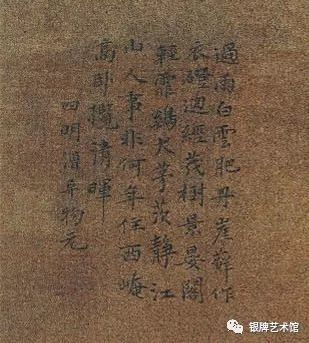 過雨白雲肥丹崖薜作
衣磴迴經茂樹景晏閣
輕霏鷄犬茅茨靜江
山人事非何年住西崦
高卧攬清暉
四明物元
银牌艺术馆